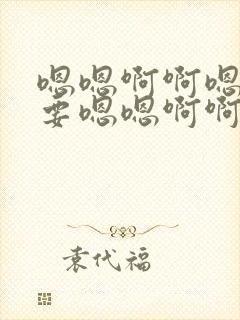 嗯嗯啊啊嗯
要嗯嗯啊啊
袁代福